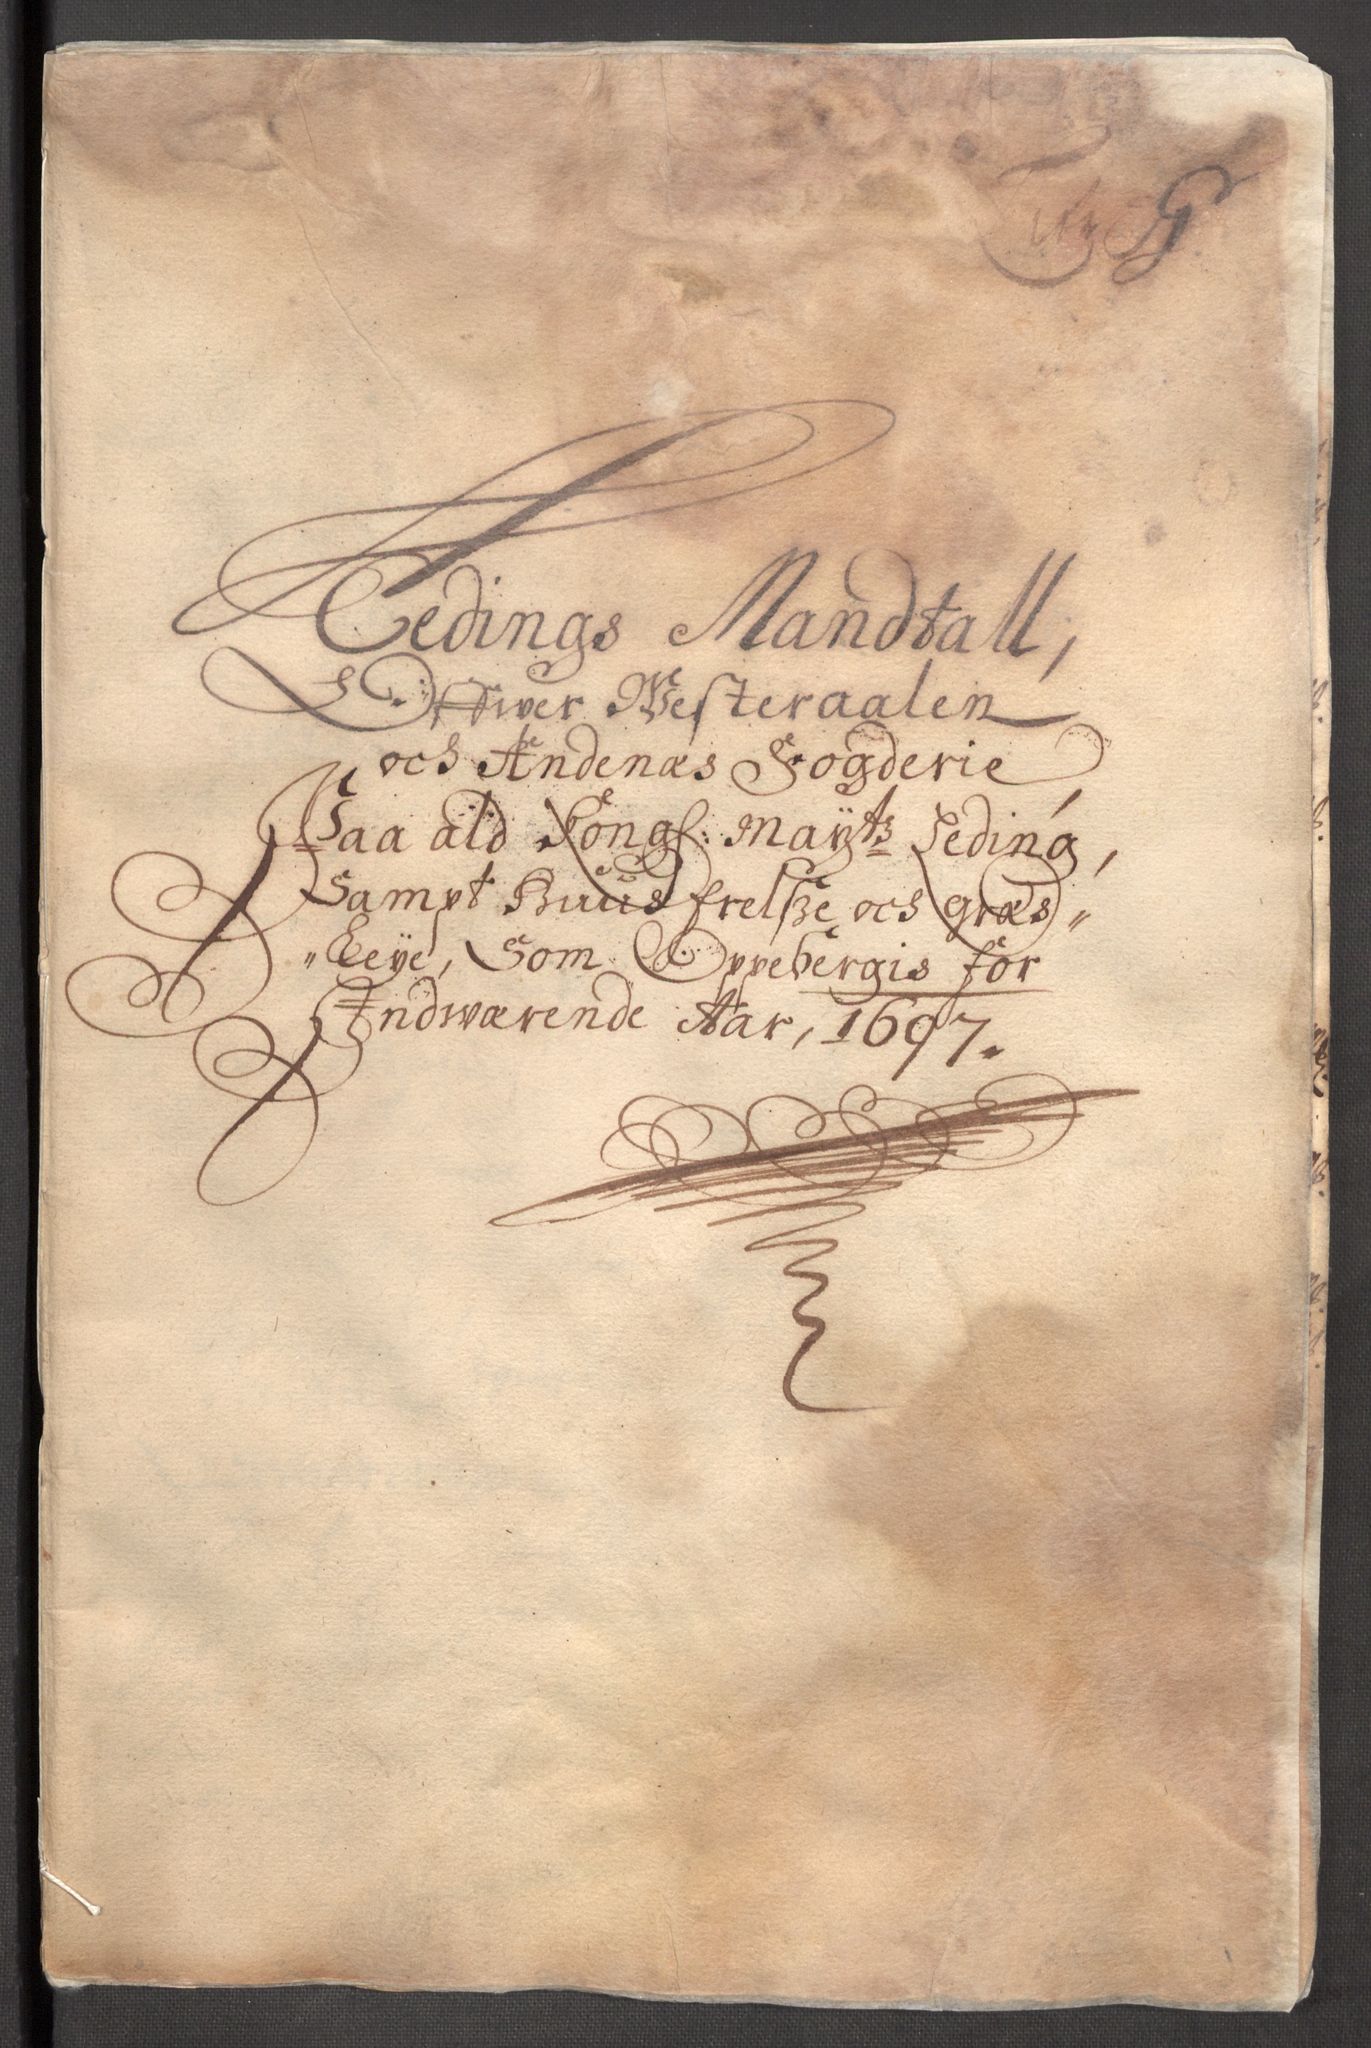 G
Leedings Mandtall,
Offwer Westeraalen
och Andenæs Fogderie
Paa ald Kongl: Mayts Leding,
Sampt Huus frelsze och græs„
„Leye, Som Oppebergis for
Indwærende Aar, 1697.